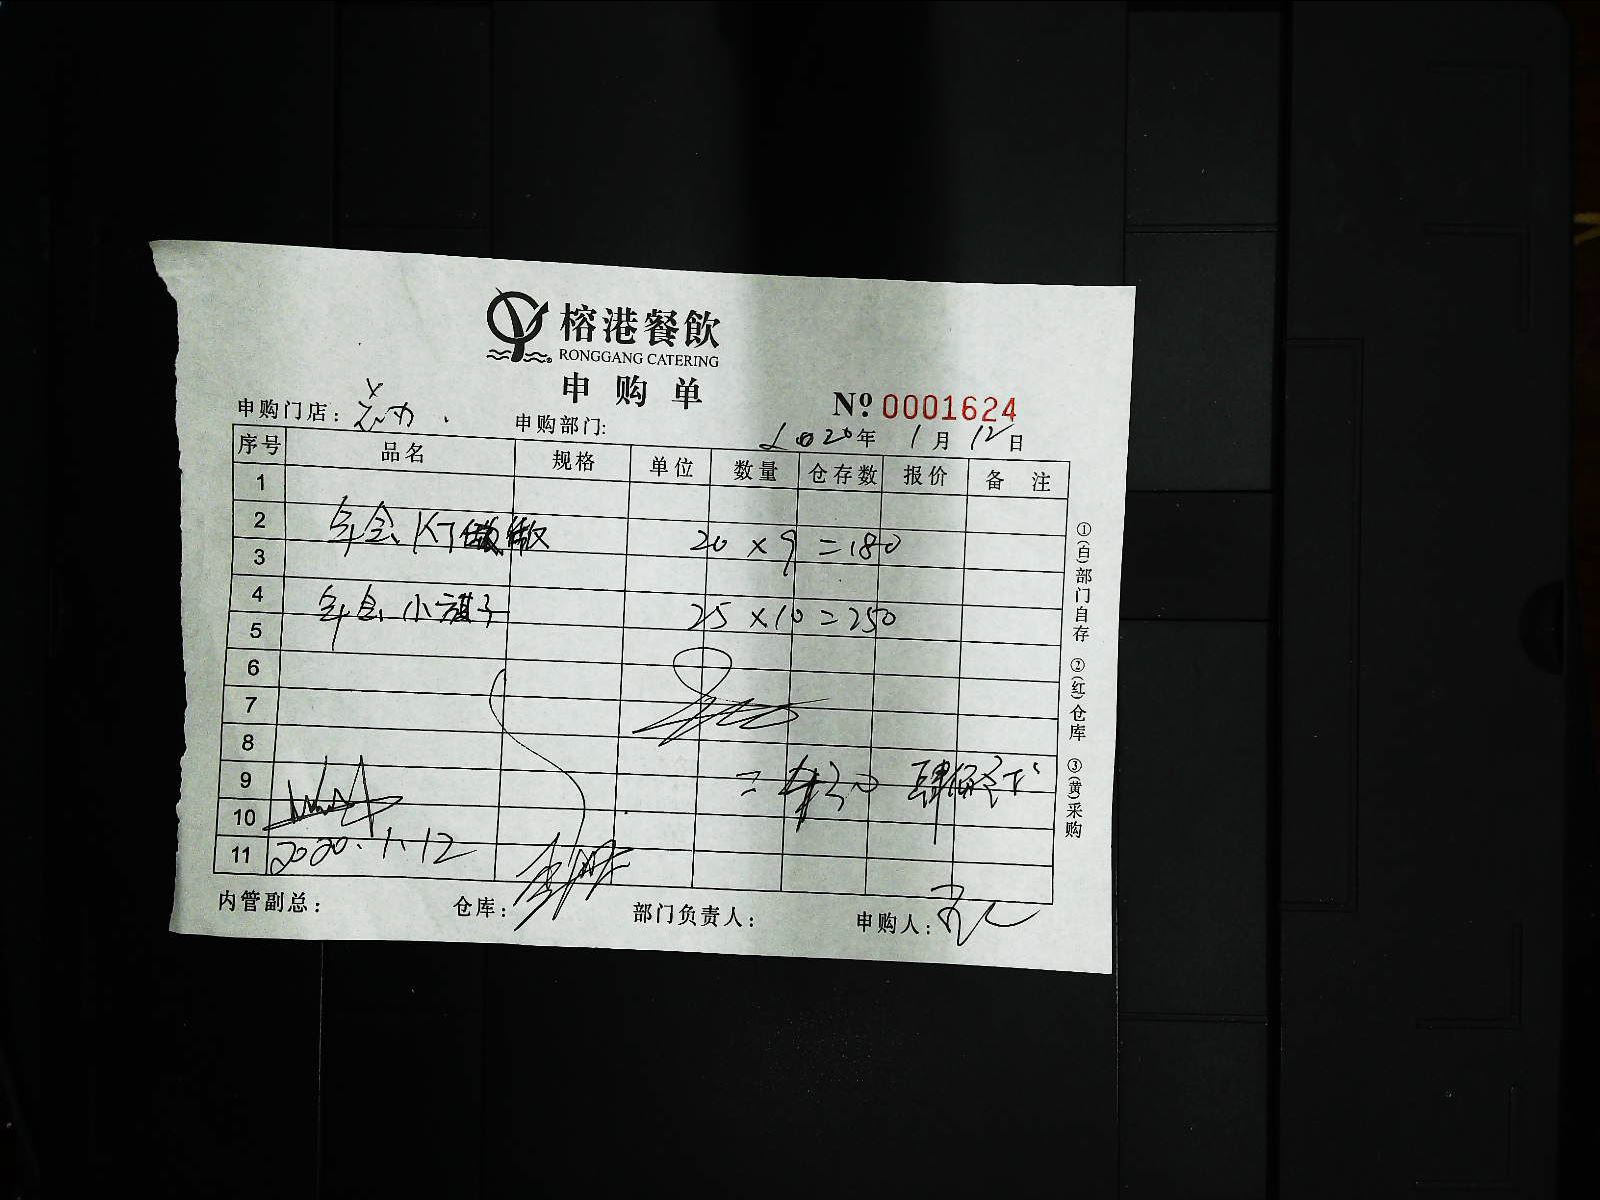 榕港餐飲
RONGGANG CATERING
申购单
No 0001624
申购门店: 申购部门: 2020年1月12日
序号 品名 规格 单位 数量 仓存数 报价 备注
1
2 年会KT 20×9=180
3
4 年会小旗子 25×10=250
5
6
7
8
9 =430
10
11 2020.1.12
内管副总: 仓库: 部门负责人: 申购人:
①(白)部门自存 ②(红)仓库 ③(黄)采购